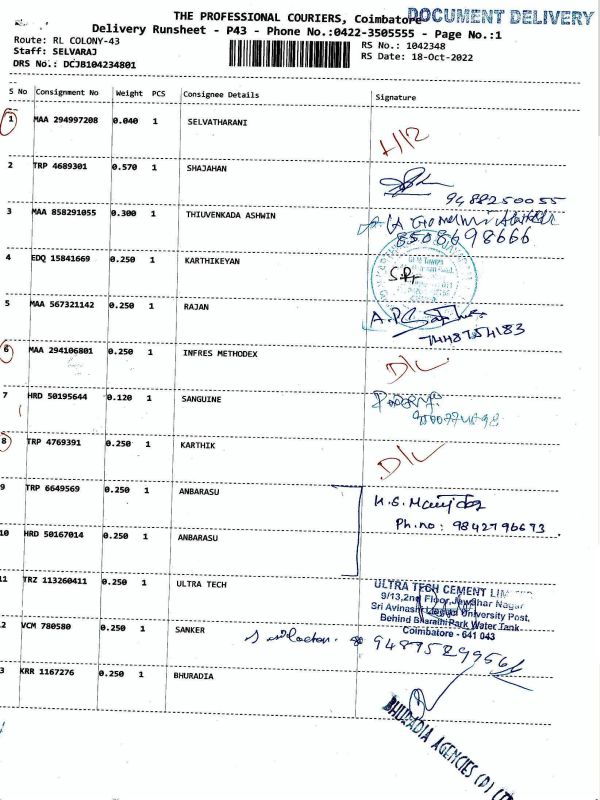 THE PROFESSIONAL COURIERS, Coimbatore
DOCUMENT DELIVERY
Delivery Runsheet - P43 - Phone No:0422-3505555 - Page No.:1
Route: RL COLONY-43
RS No.: 1042348
Staff: SELVARAJ
RS Date: 18-Oct-2022
DRS No.: DCJB104234801
S No Consignment No Weight PCS Consignee Details Signature
1 MAA 294997208 0.040 1 SELVATHARANI
2 TRP 4689301 0.570 1 SHAJAHAN
9488250055
3 MAA 858291055 0.300 1 THIUVENKADA ASHWIN
8508698666
4 EDQ 15841669 0.250 1 KARTHIKEYAN
5 MAA 567321142 0.250 1 RAJAN
7448754183
6 MAA 294106801 0.250 1 INFRES METHODEX D/L
7 HRD 50195644 0.120 1 SANGUINE
8 TRP 4769391 0.250 1 KARTHIK D/L
9 TRP 6649569 0.250 1 ANBARASU
Ph.no: 9842796673
10 HRD 50167014 0.250 1 ANBARASU
11 TRZ 113260411 0.250 1 ULTRA TECH
ULTRA TECH CEMENT
9/13,2nd Floor,Jawahar Nagar
Sri Avinashi University Post,
Behind Bharathi Park Water Tank
Coimbatore - 641 043
2 VCM 780580 0.250 1 SANKER
9487529956
3 KRR 1167276 0.250 1 BHURADIA
BHURADIA AGENCIES (P)